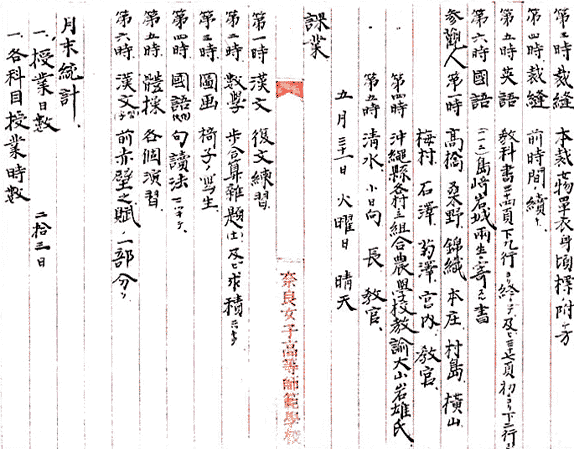 第三時 裁縫 本裁女物單衣身頃標附ケ方
第四時 裁縫 前時間續キ
第五時 英語 教科書三四頁下九行ヨリ終マテ及三七頁初ヨリ下二行マ
第六時 國語 島崎岩城兩生ニ寄スル書
參觀人 第一時 高橋 桑野 錦織 本庄 村島 橫山
梅村 石澤 菊澤 宮内 教官
第四時 沖繩縣各村立組合農學校教諭大山岩雄氏
第五時 清水 小日向 長 教官
五月三十一日 火曜日 晴天
課業
奈良女子高等師範學校
第一時 漢文 復文練習
第二時 數學 步合算雜題 及ヒ求積ニツキ
第三時 圖画 椅子ノ写生
第四時 國語 句讀法ニツキテ
第五時 體操 各個演習
第六時 漢文 前赤壁之賦ノ一部分
月末統計
一、授業日數 二拾三日
一、各科目授業時數